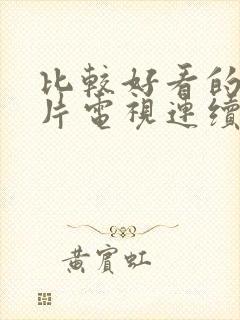 比較好看的
片電視連續
黃賓虹